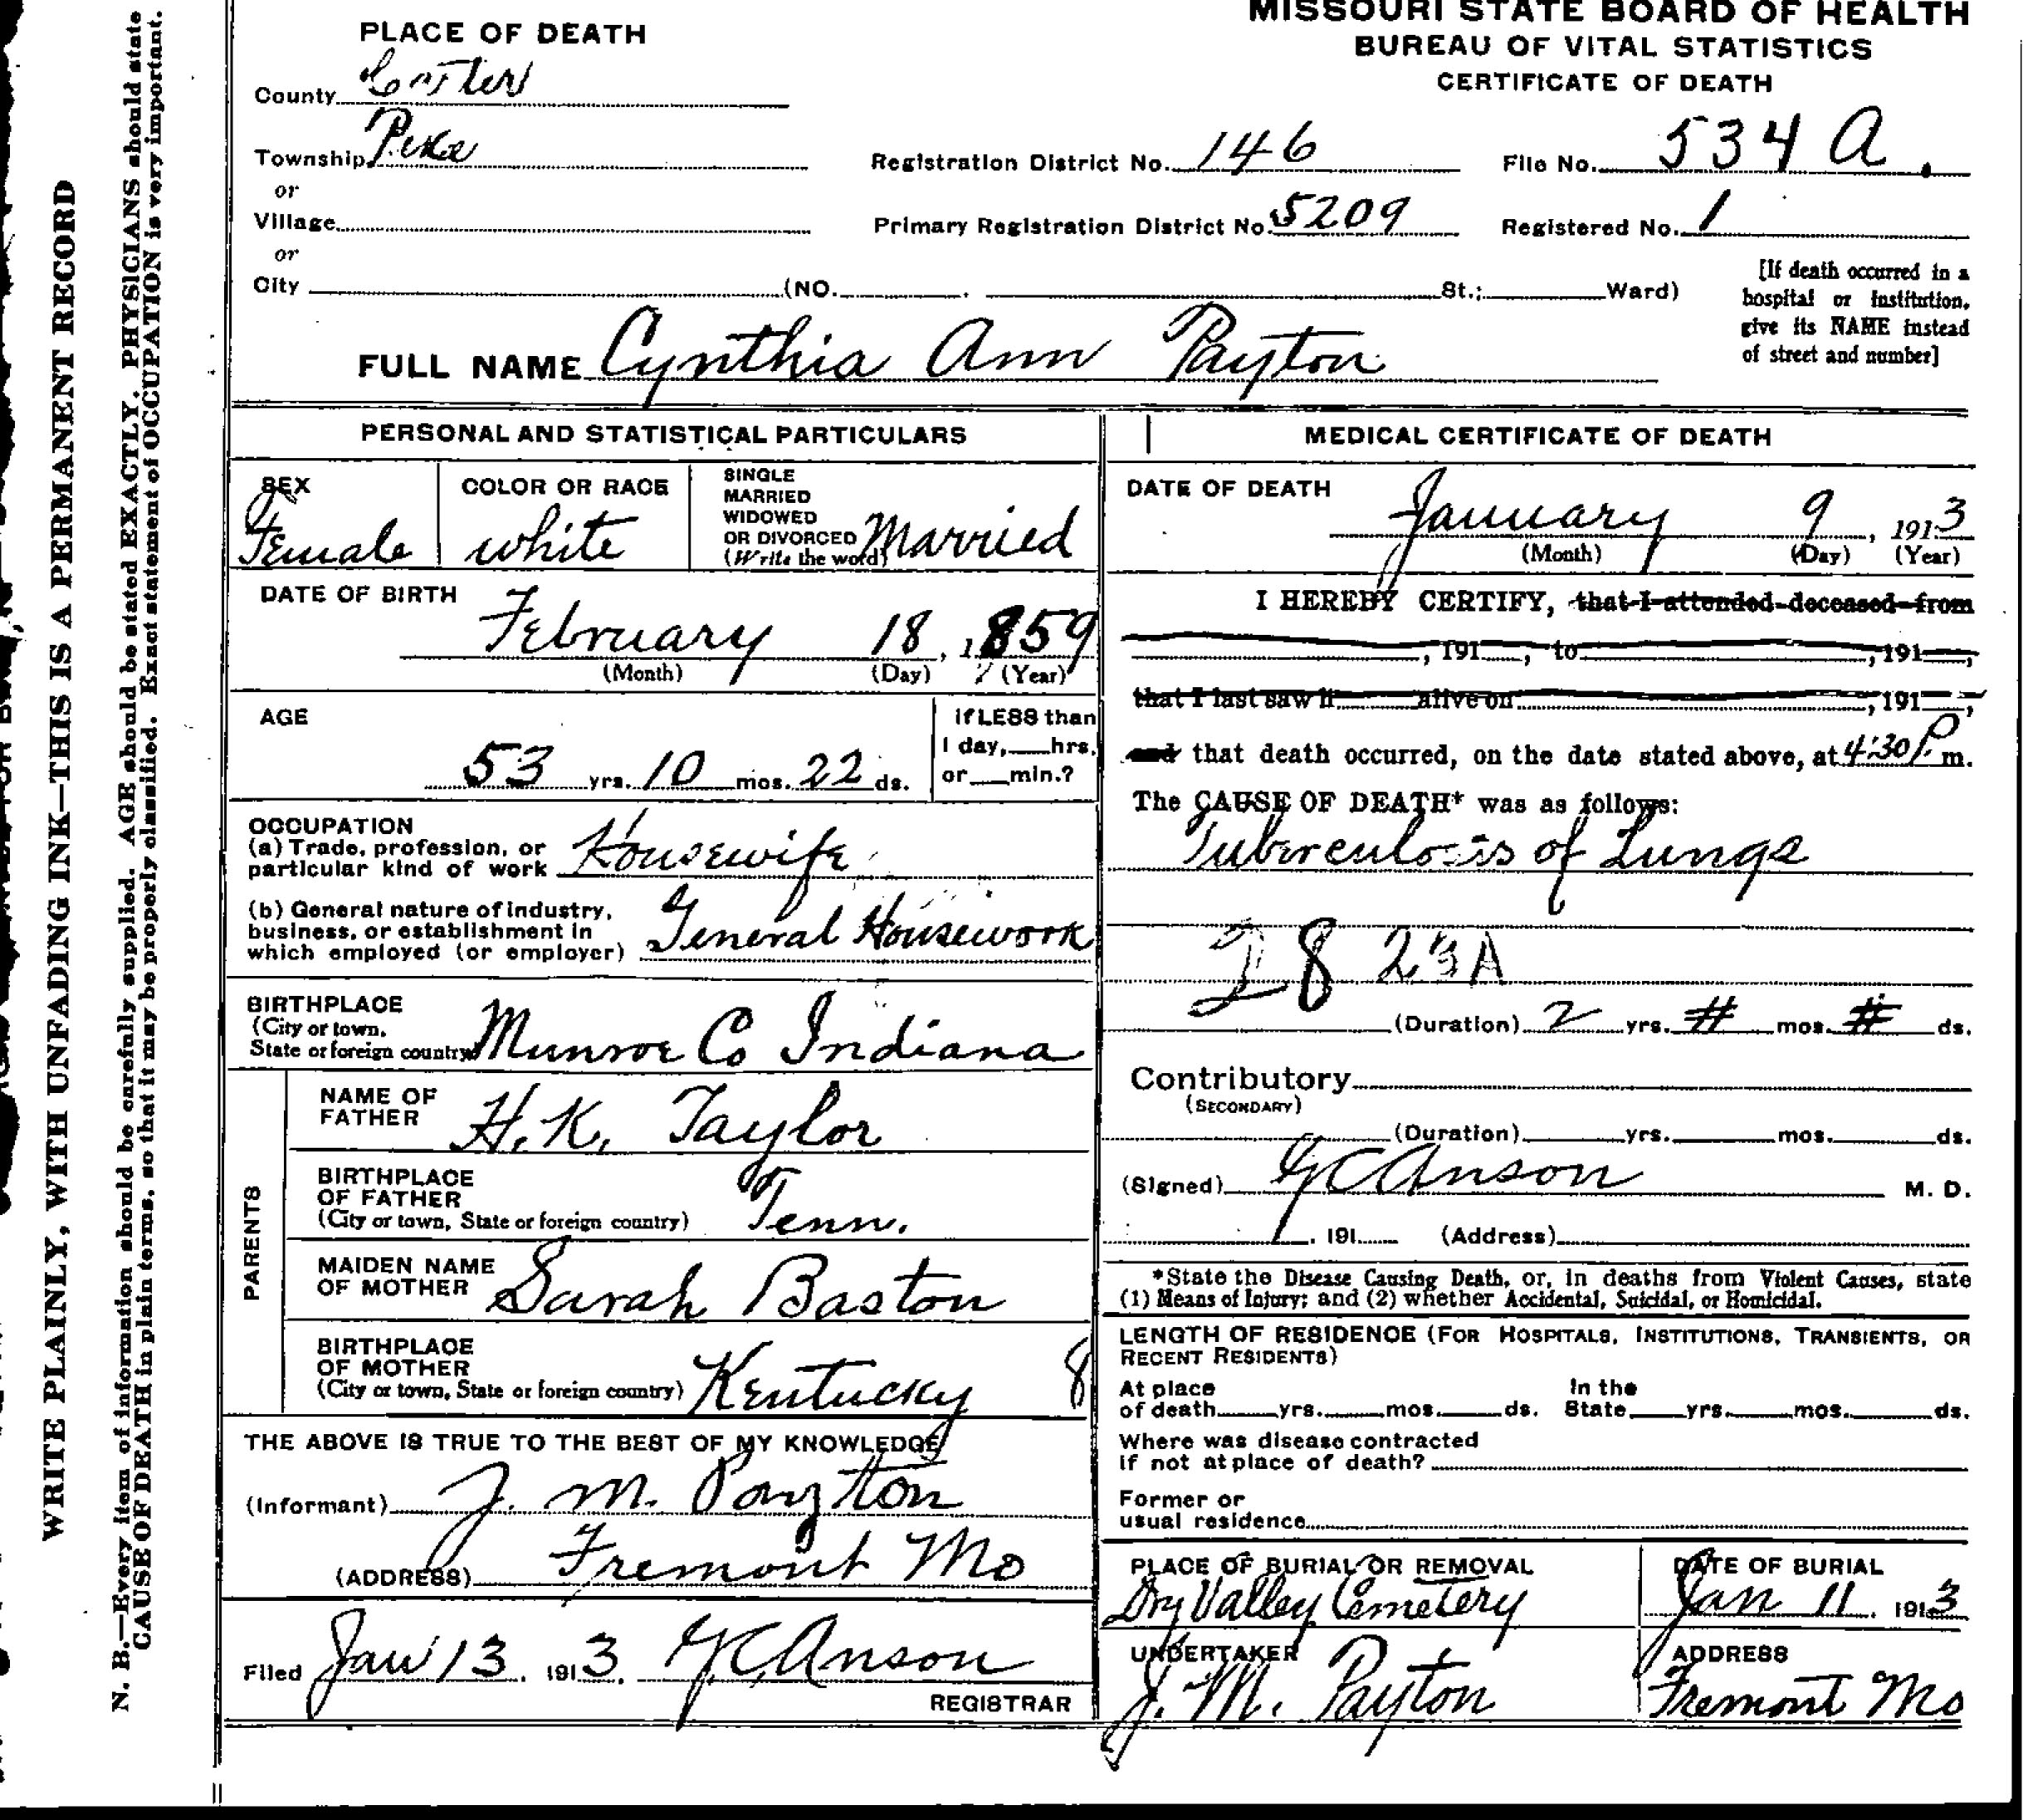 MISSOURI STATE BOARD OF HEALTH
BUREAU OF VITAL STATISTICS
CERTIFICATE OF DEATH
PLACE OF DEATH
County
Township Pike
or
Village
or
City (NO. St.; Ward)
Registration District No. 146 File No. 534 A.
Primary Registration District No. 5209 Registered No. 1
[If death occurred in a
hospital or institution,
give its NAME instead
of street and number]
FULL NAME Cynthia Ann Payton
PERSONAL AND STATISTICAL PARTICULARS
SEX Female
COLOR OR RACE white
SINGLE
MARRIED
WIDOWED
OR DIVORCED
(Write the word) Married
DATE OF BIRTH February 18, 1859
(Month) (Day) (Year)
AGE
53 yrs. 10 mos. 22 ds.
If LESS than
1 day, hrs.
or min.?
OCCUPATION
(a) Trade, profession, or
particular kind of work Housewife
(b) General nature of industry,
business, or establishment in
which employed (or employer) General Housework
BIRTHPLACE
(City or town,
State or foreign country) Munroe Co Indiana
PARENTS
NAME OF
FATHER H. K. Taylor
BIRTHPLACE
OF FATHER
(City or town, State or foreign country) Tenn.
MAIDEN NAME
OF MOTHER Sarah Baston
BIRTHPLACE
OF MOTHER
(City or town, State or foreign country) Kentucky 8
THE ABOVE IS TRUE TO THE BEST OF MY KNOWLEDGE
(Informant) J. M. Payton
(ADDRESS) Fremont Mo
Filed Jan 13, 1913. Anson
REGISTRAR
MEDICAL CERTIFICATE OF DEATH
DATE OF DEATH January 9, 1913
(Month) (Day) (Year)
I HEREBY CERTIFY, that I attended deceased from
, 191 , to , 191 ,
that I last saw h alive on , 191 ,
and that death occurred, on the date stated above, at 4:30 P. m.
The CAUSE OF DEATH* was as follows:
Tuberculosis of Lungs
28 23A
(Duration) 2 yrs. # mos. # ds.
Contributory
(SECONDARY)
(Duration) yrs. mos. ds.
(Signed) Anson M. D.
, 191 (Address)
*State the Disease Causing Death, or, in deaths from Violent Causes, state
(1) Means of Injury; and (2) whether Accidental, Suicidal, or Homicidal.
LENGTH OF RESIDENCE (FOR HOSPITALS, INSTITUTIONS, TRANSIENTS, OR
RECENT RESIDENTS)
At place In the
of death yrs. mos. ds. State yrs. mos. ds.
Where was disease contracted
if not at place of death?
Former or
usual residence
PLACE OF BURIAL OR REMOVAL
Dry Valley Cemetery
DATE OF BURIAL
Jan 11 1913
UNDERTAKER
J. M. Payton
ADDRESS
Fremont Mo
WRITE PLAINLY, WITH UNFADING INK—THIS IS A PERMANENT RECORD
N. B.—Every item of information should be carefully supplied. AGE should be stated EXACTLY. PHYSICIANS should state
CAUSE OF DEATH in plain terms, so that it may be properly classified. Exact statement of OCCUPATION is very important.